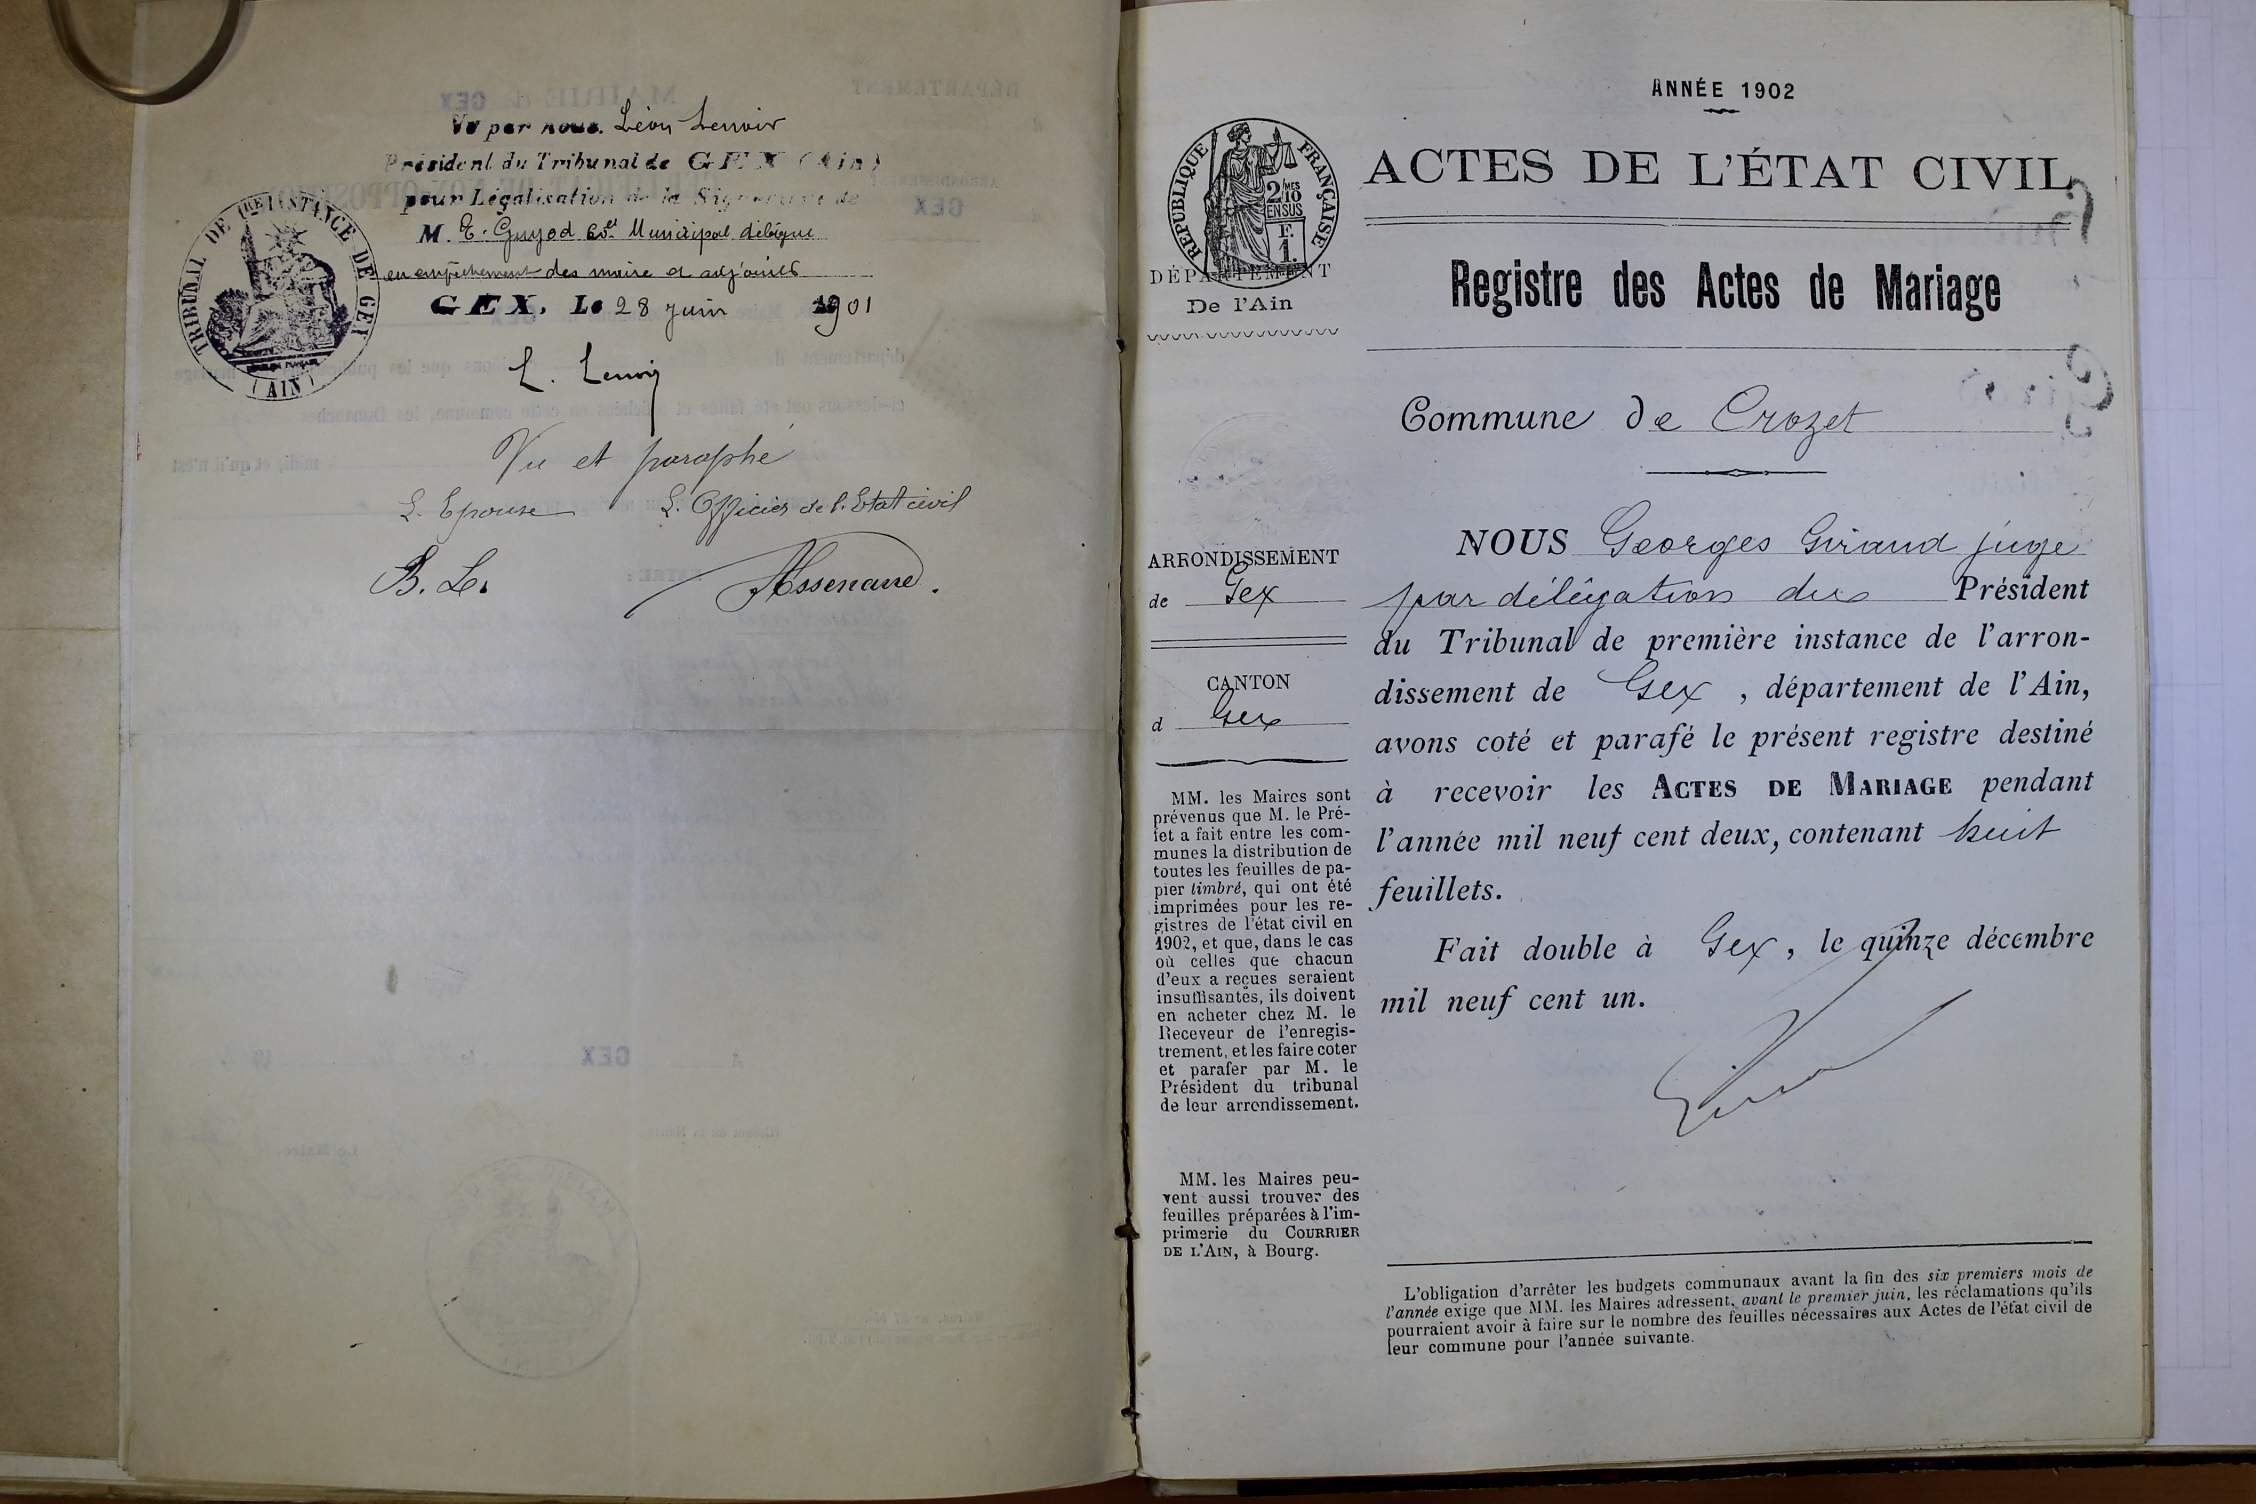 Vu par nous. Léon Lenoir
Président du Tribunal de GEX (Ain)
pour Légalisation de la Signature de
M. E. Guyod Cer Municipal délégué
en empêchement des maire et adjoints
GEX, Le 28 juin 1901
TRIBUNAL DE 1RE INSTANCE DE GEX
(AIN)
L. Lenoir
Vu et paraphé
L. Epouse L. Officier de l. Etat civil
B. L.
ANNÉE 1902
RÉPUBLIQUE FRANÇAISE
2/10 MES
EN SUS
F.
1.
DÉPARTEMENT
De l'Ain
ACTES DE L'ÉTAT CIVIL
Registre des Actes de Mariage
Commune de Crozet
ARRONDISSEMENT
de Gex
CANTON
d Gex
MM. les Maires sont
prévenus que M. le Pré-
fet a fait entre les com-
munes la distribution de
toutes les feuilles de pa-
pier timbré, qui ont été
imprimées pour les re-
gistres de l'état civil en
1902, et que, dans le cas
où celles que chacun
d'eux a reçues seraient
insuffisantes, ils doivent
en acheter chez M. le
Receveur de l'enregis-
trement, et les faire coter
et parafer par M. le
Président du tribunal
de leur arrondissement.
MM. les Maires peu-
vent aussi trouver des
feuilles préparées à l'im-
primerie du COURRIER
DE L'AIN, à Bourg.
NOUS Georges Giraud juge
par délégation du Président
du Tribunal de première instance de l'arron-
dissement de Gex, département de l'Ain,
avons coté et parafé le présent registre destiné
à recevoir les ACTES DE MARIAGE pendant
l'année mil neuf cent deux, contenant huit
feuillets.
Fait double à Gex, le quinze décembre
mil neuf cent un.
L'obligation d'arrêter les budgets communaux avant la fin des six premiers mois de
l'année exige que MM. les Maires adressent, avant le premier juin, les réclamations qu'ils
pourraient avoir à faire sur le nombre des feuilles nécessaires aux Actes de l'état civil de
leur commune pour l'année suivante.